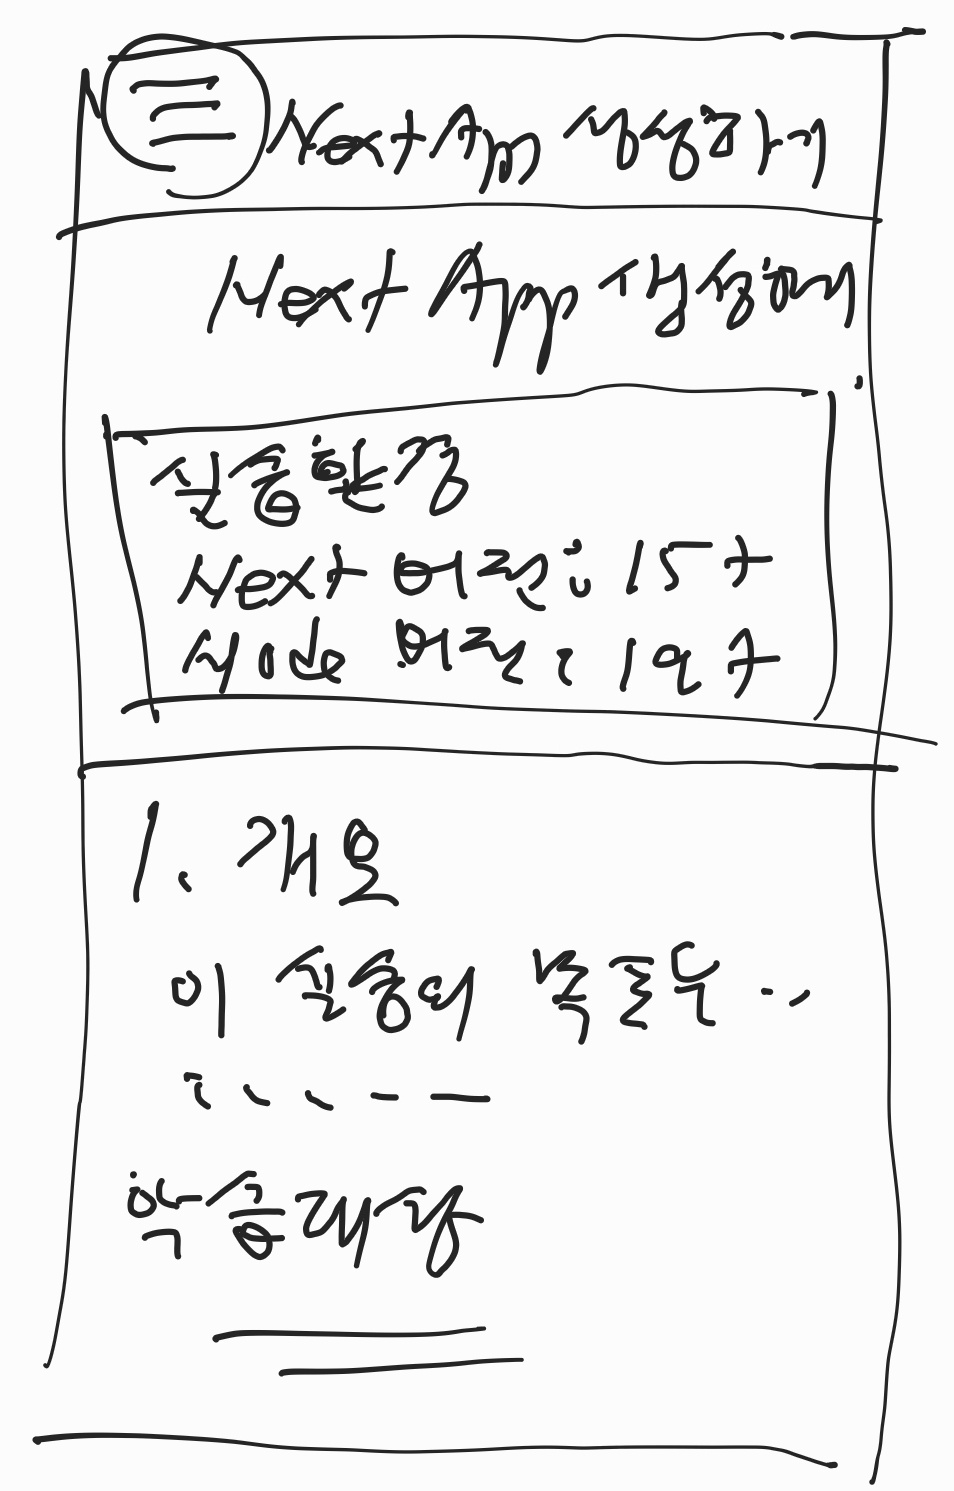 Next App 생성하기
Next App 생성하기
실습환경
Next 버전: 15+
서버 버전: 19+
1. 개요
이 실습의 목표는 ...
학습대상